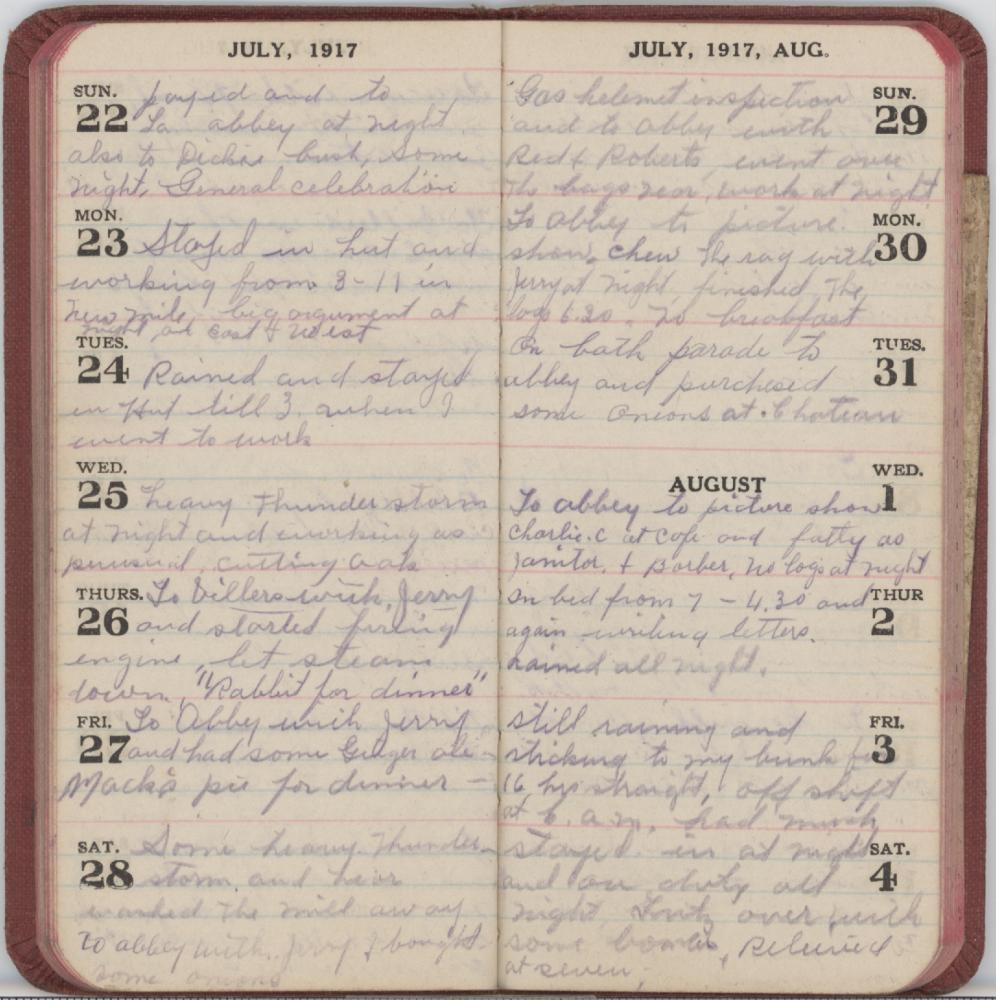 JULY, 1917
SUN.
22
payed and to
La abbey at night,
also to Dickie bush, some
night, General celebration
MON.
23
Stayed in hut and
working from 3-11 in
New mill, big argument at
night on East & West
TUES.
24
Rained and stayed
in Hut till 3. when I
went to work
WED.
25
heavy thunder storm
at night and working as
, cutting oak
THURS.
26
To Villers with Jerry
and started firing
engine, let steam
down, "Rabbit for dinner"
FRI.
27
To Abby with Jerry
and had some Ginger ale
Macks pie for dinner -
SAT.
28
Some heavy Thunder-
storm and near
washed the mill away
To abbey with Jerry & bought
some onions
JULY, 1917, AUG.
SUN.
29
Gas helemet inspection
and to abby with
Red & Roberts, went over
The bags near, work at night
MON.
30
To abbey to picture.
show, chew The rag with
Jerry at night, finished The
logs 6.30. No breakfast
TUES.
31
On bath parade to
abbey and purchased
some onions at Chateau
AUGUST
WED.
1
To abbey to picture show
Charlie. C at Cafe and fatty as
Janitor, & Barber, No logs at night
THUR
2
In bed from 7 - 4.30 and
again writing letters.
rained all night.
FRI.
3
still raining and
sticking to my bunk for
16 hrs straight, off shift
at 6. a.m. had much
SAT.
4
stayed in at night
and on duty all
night, Fritz over with
some bombs, Relieved
at seven.